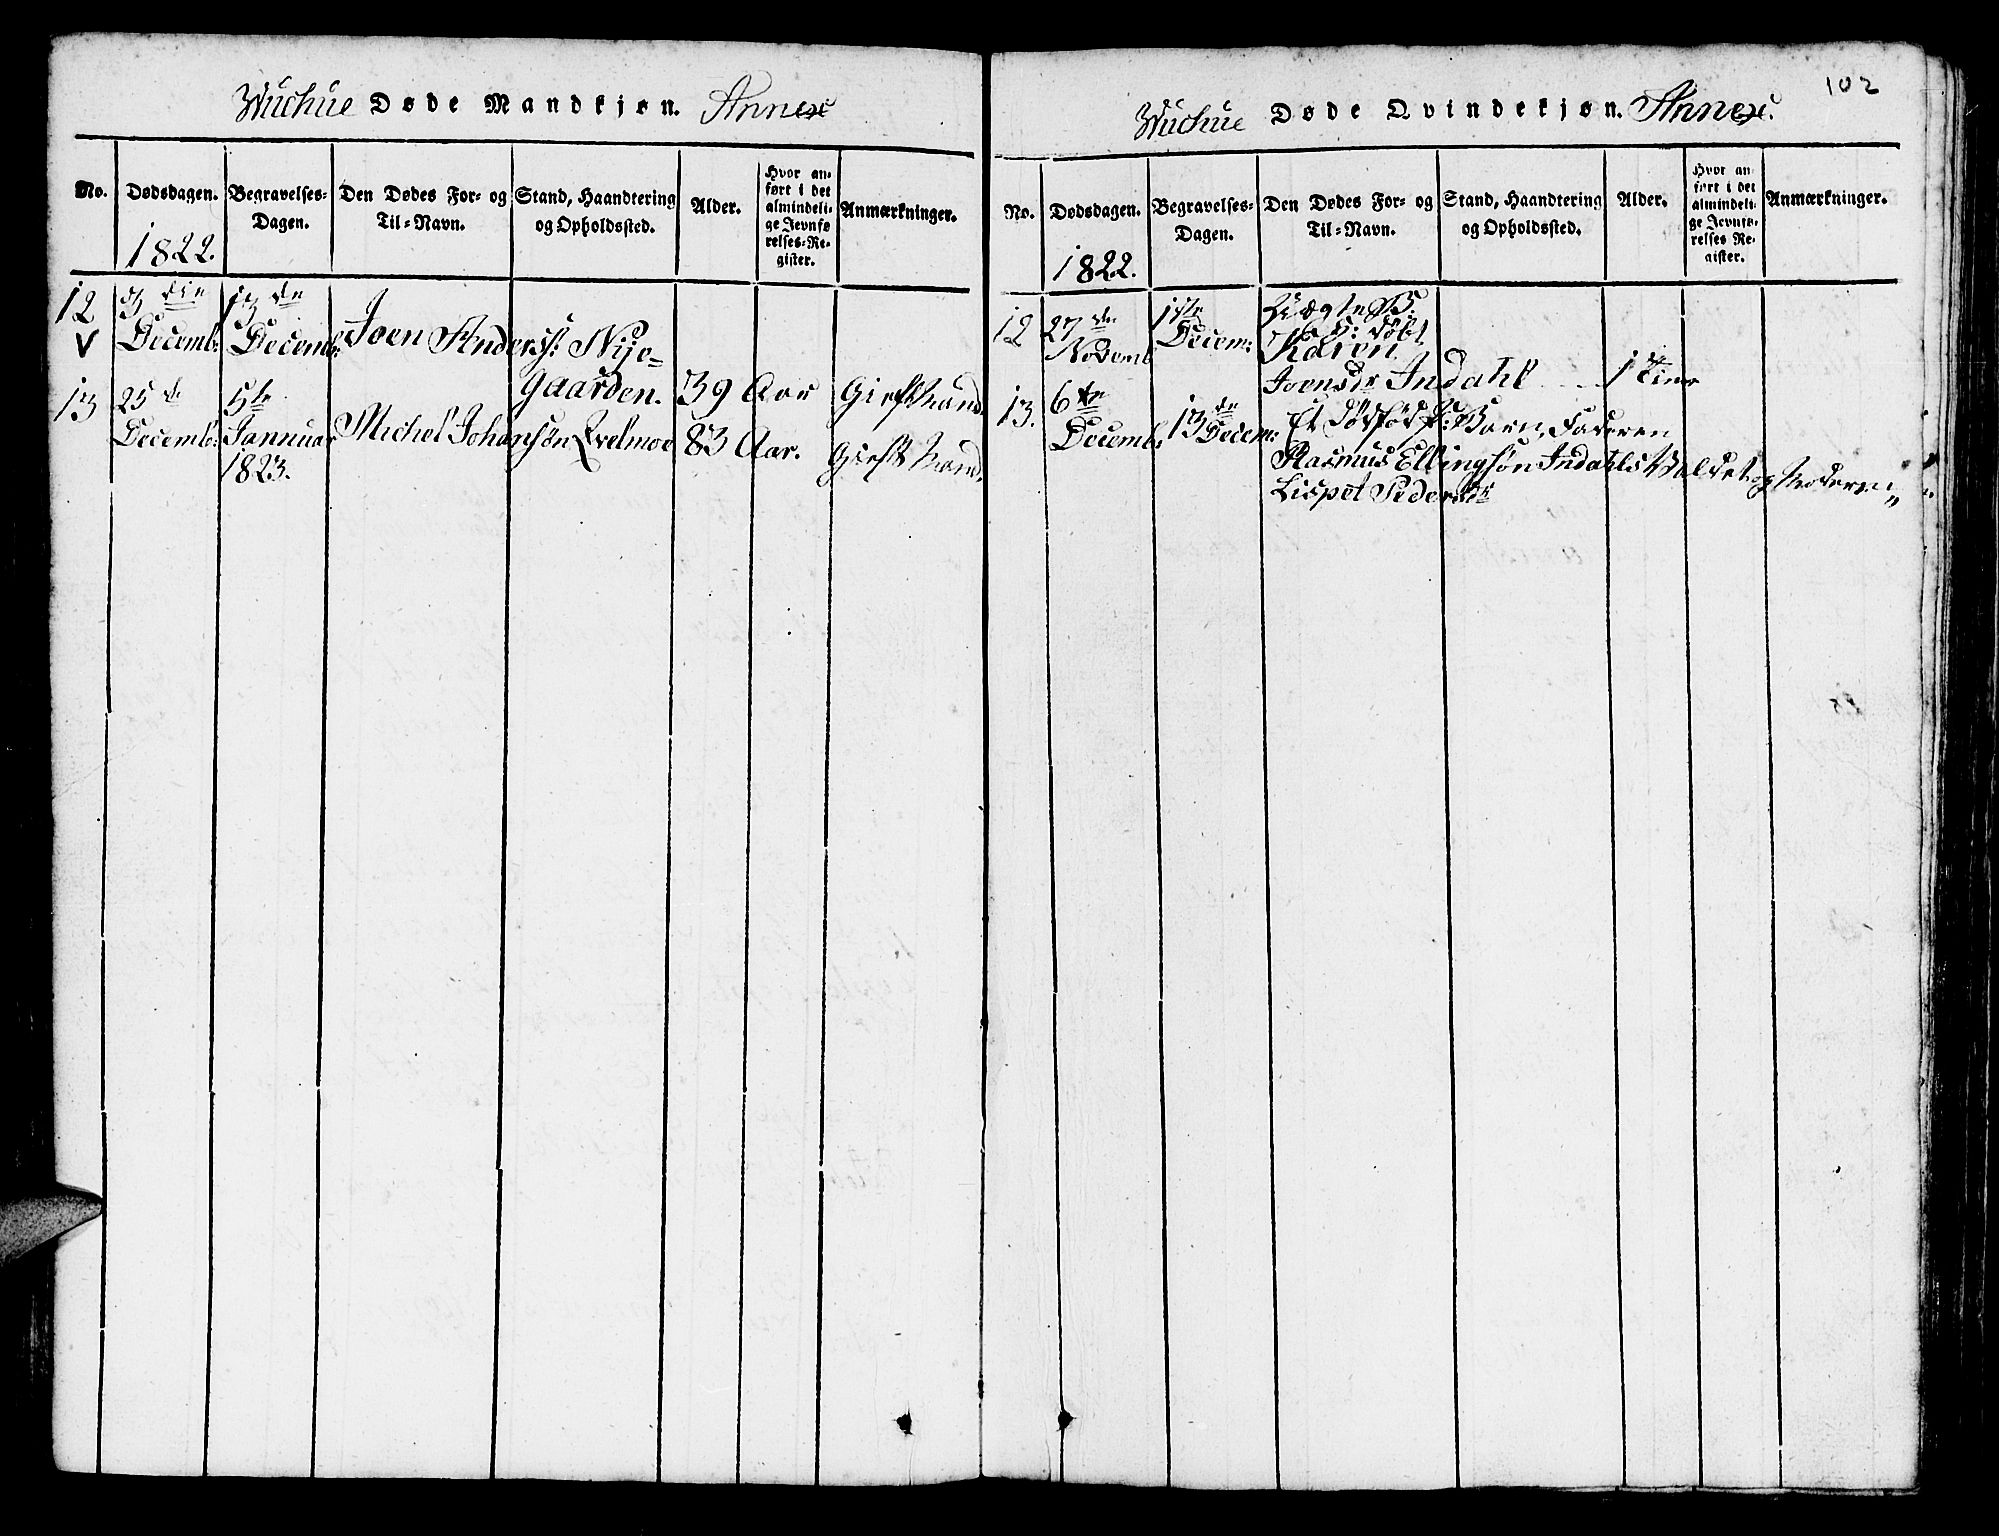 Wuchue Døde Mandkjøn. Annex
No.
Dødsdagen.
1822.
Begravelses-
Dagen.
Den Dødes For- og
Til-Navn.
Stand, Haandtering
og Opholdssted.
Alder.
Hvor an-
ført i det
almindeli-
ge Jevnfø
relses-Re-
gister.
Anmærkninger.
12
Decemb:
13 de
Decemb:
Joen Anders: Nye-
gaarden.
39 Aar
Gift Mand
13
25 de
Decemb:
5te
Januar
1823.
Michel Johansøn Qvelmoe
83 Aar.
Gift Mand.
102
Wuchue Døde Qvindekjøn. Annex:
No.
Dødsdagen.
1822.
Begravelses-
Dagen.
Den Dødes For- og
Til-Navn.
Stand, Haandtering
og Opholdssted.
Alder.
Hvor an
ført i det
almindeli-
ge Jevnfø-
relses Re-
gister.
Anmærkninger.
12
27 de
Novemb
1ste
Decem:
Ægte B:
H: døbt
Karen
Joensdr Indahl
1 Time
13.
6 te
Decemb:
13 de Decem:
Et dødfød P: Barn, Faderen
Rasmus Ellingsøn Indahls Valdet og Moderen
Lispet Pedersdr